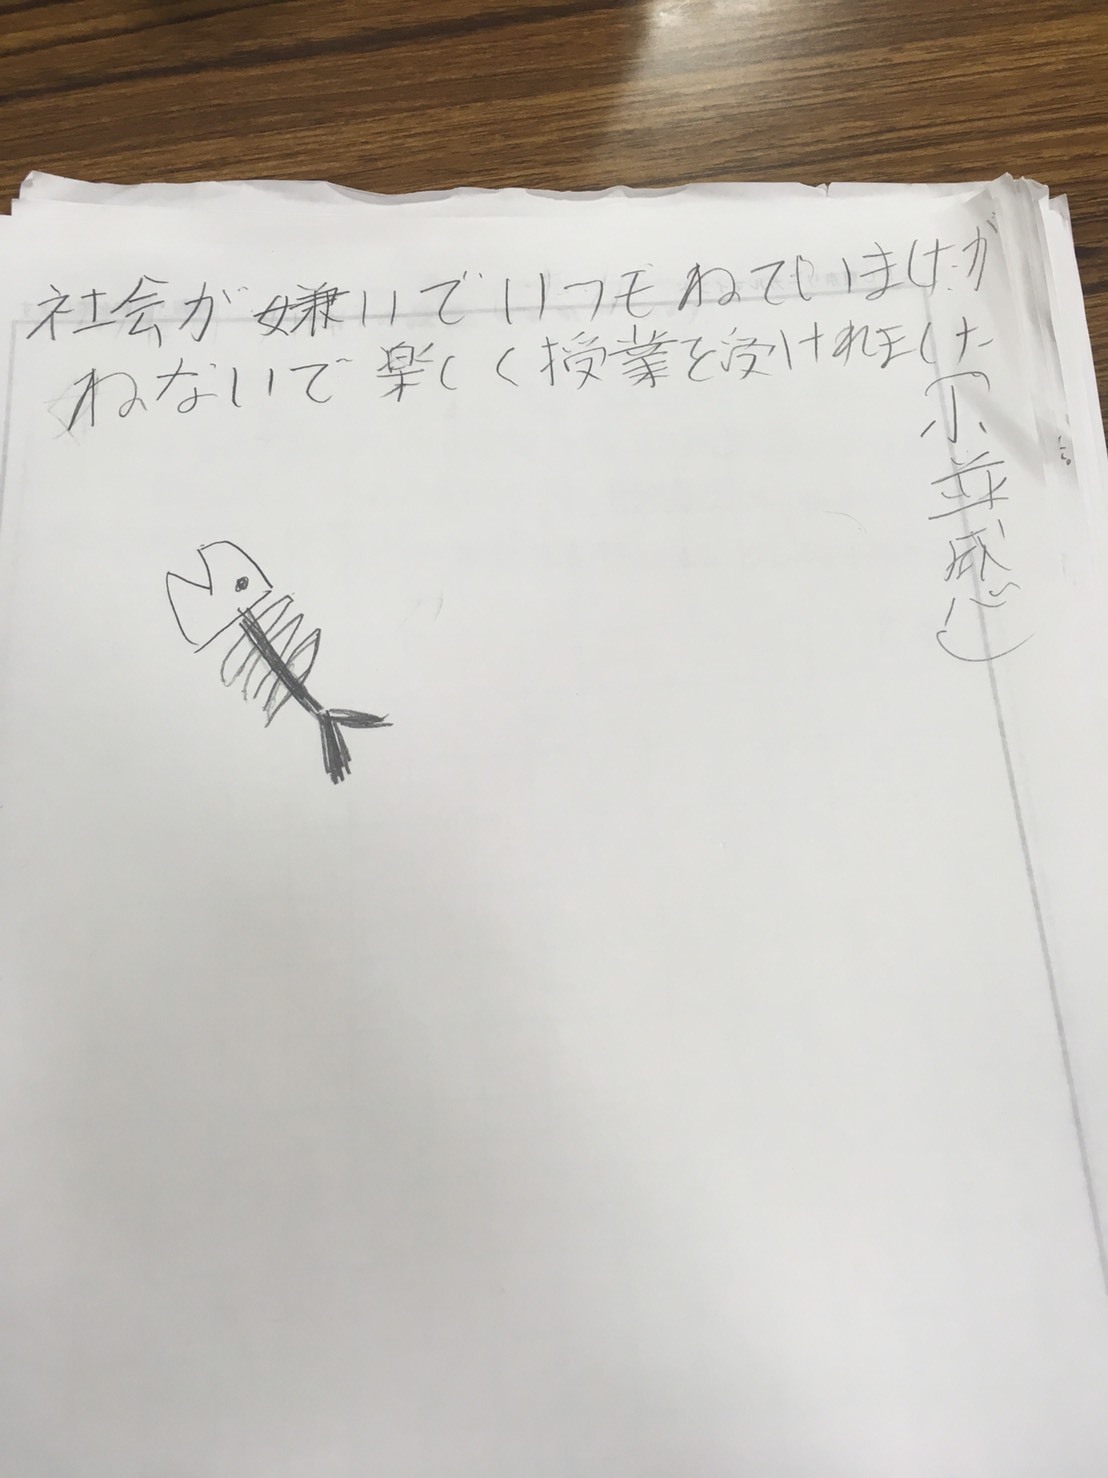 社会が嫌いでいつもねていましたが
ねないで楽しく授業を受けれました
(小並感)